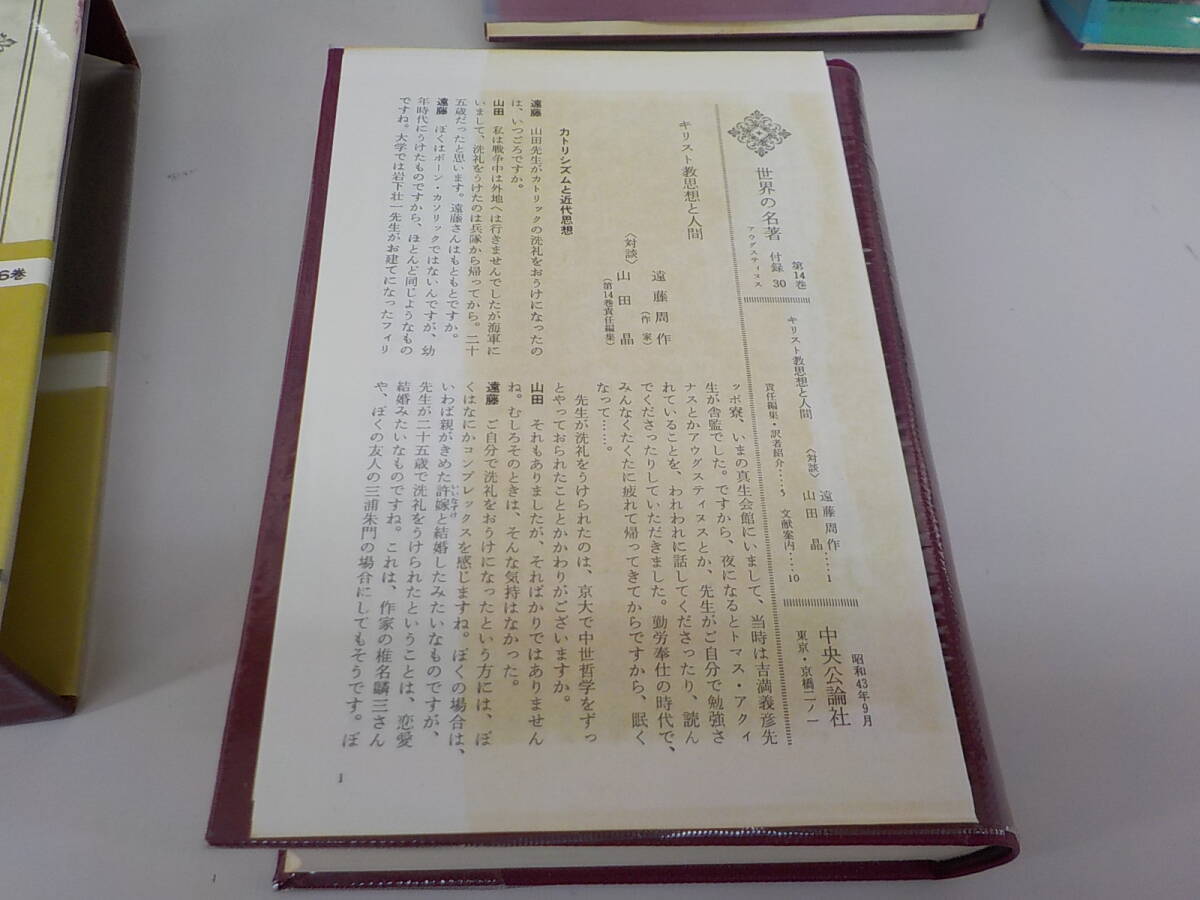 世界の名著
付録 30
第14巻
アウグスティヌス
キリスト教思想と人間
〈対談〉
遠藤周作
山田 晶‥‥1
責任編集・訳者紹介‥‥5
文献案内‥‥10
昭和43年9月
中央公論社
東京・京橋二ノ一
キリスト教思想と人間
〈対談〉
遠藤周作
(作家)
山田 晶
(第14巻責任編集)
カトリシズムと近代思想
遠藤 山田先生がカトリックの洗礼をおうけになったの
は、いつごろですか。
山田 私は戦争中は外地へは行きませんでしたが海軍に
いまして、洗礼をうけたのは兵隊から帰ってから。二十
五歳だったと思います。遠藤さんはもともとですか。
遠藤 ぼくはボーン・カソリックではないんですが、幼
年時代にうけたものですから、ほとんど同じようなもの
ですね。大学では岩下壮一先生がお建てになったフィリ
ッポ寮、いまの真生会館にいまして、当時は吉満義彦先
生が舎監でした。ですから、夜になるとトマス・アクィ
ナスとかアウグスティヌスとか、先生がご自分で勉強さ
れていることを、われわれに話してくださったり、読ん
でくださったりしていただきました。勤労奉仕の時代で、
みんなくたくたに疲れて帰ってきてからですから、眠く
なって……。
先生が洗礼をうけられたのは、京大で中世哲学をずっ
とやっておられたこととかかわりがございますか。
山田 それもありましたが、そればかりではありません
ね。むしろそのときは、そんな気持はなかった。
遠藤 ご自分で洗礼をおうけになったという方には、ぼ
くはなにかコンプレックスを感じますね。ぼくの場合は、
いわば親がきめた許嫁と結婚したみたいなものですが、
いいなずけ
先生が二十五歳で洗礼をうけられたということは、恋愛
結婚みたいなものですね。これは、作家の椎名麟三さん
や、ぼくの友人の三浦朱門の場合にしてもそうです。ぼ
1
6巻